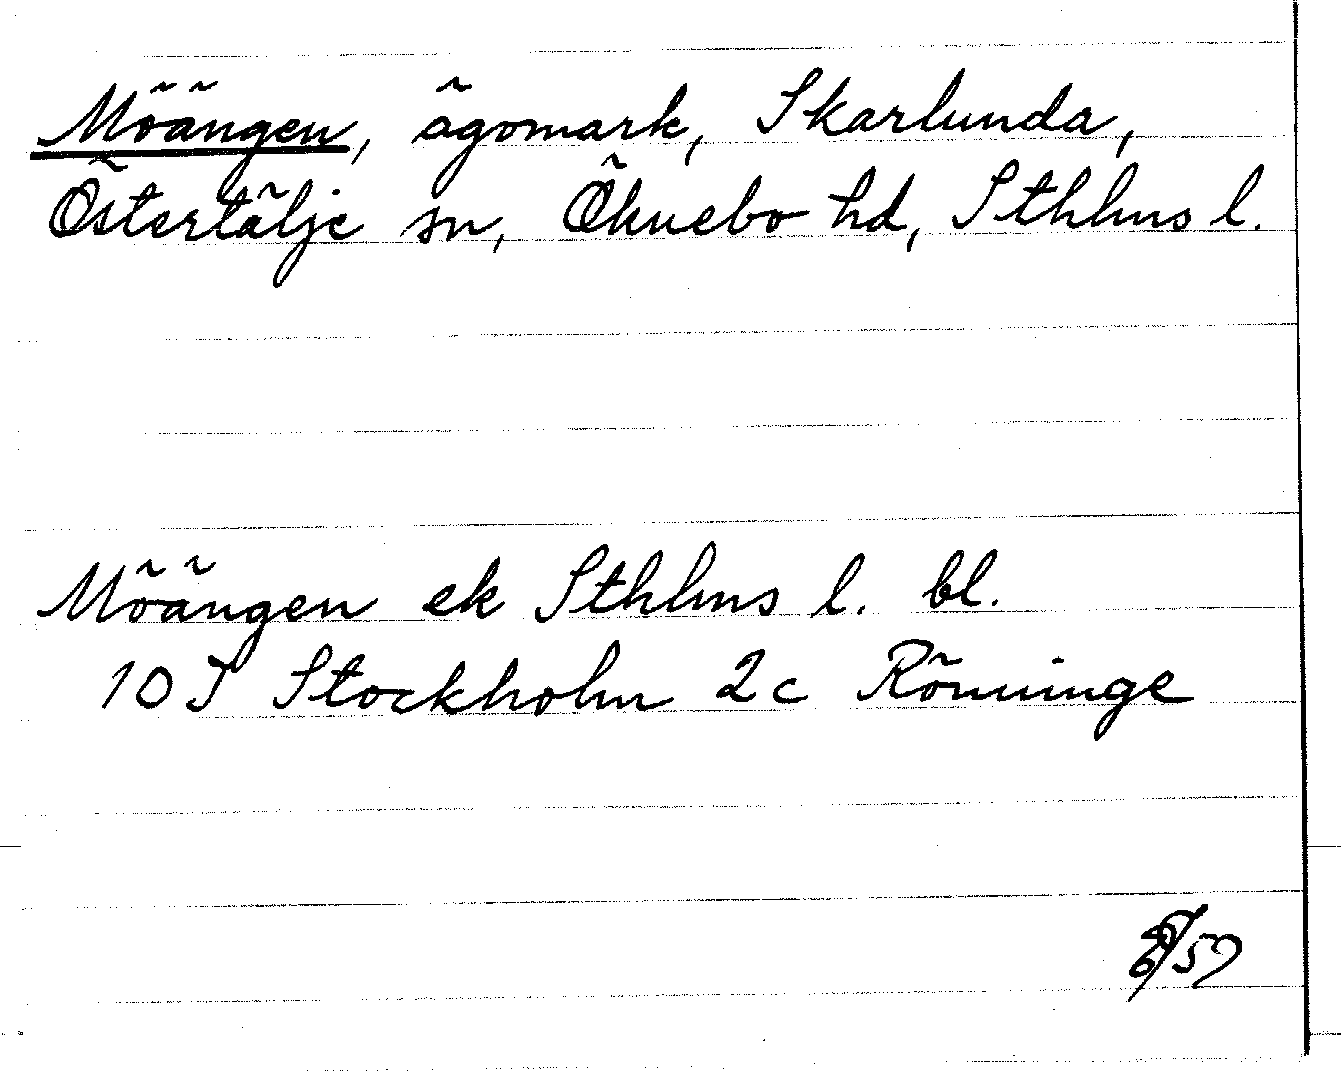 Möängen, ägomark, Skarlunda,
Östertälje sn, Öknebo hd, Sthlms l.
Möängen ek Sthlms l. bl.
10I Stockholm 2c Rönninge